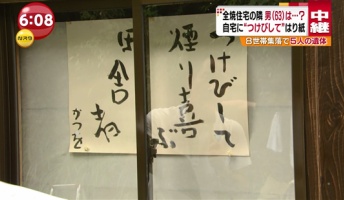 6:08
"全焼住宅の隣 男(63)は…?
自宅に"つけびして"はり紙
中継
8世帯集落で5人の遺体
つけびして
煙り喜ぶ
田舎者
かつを